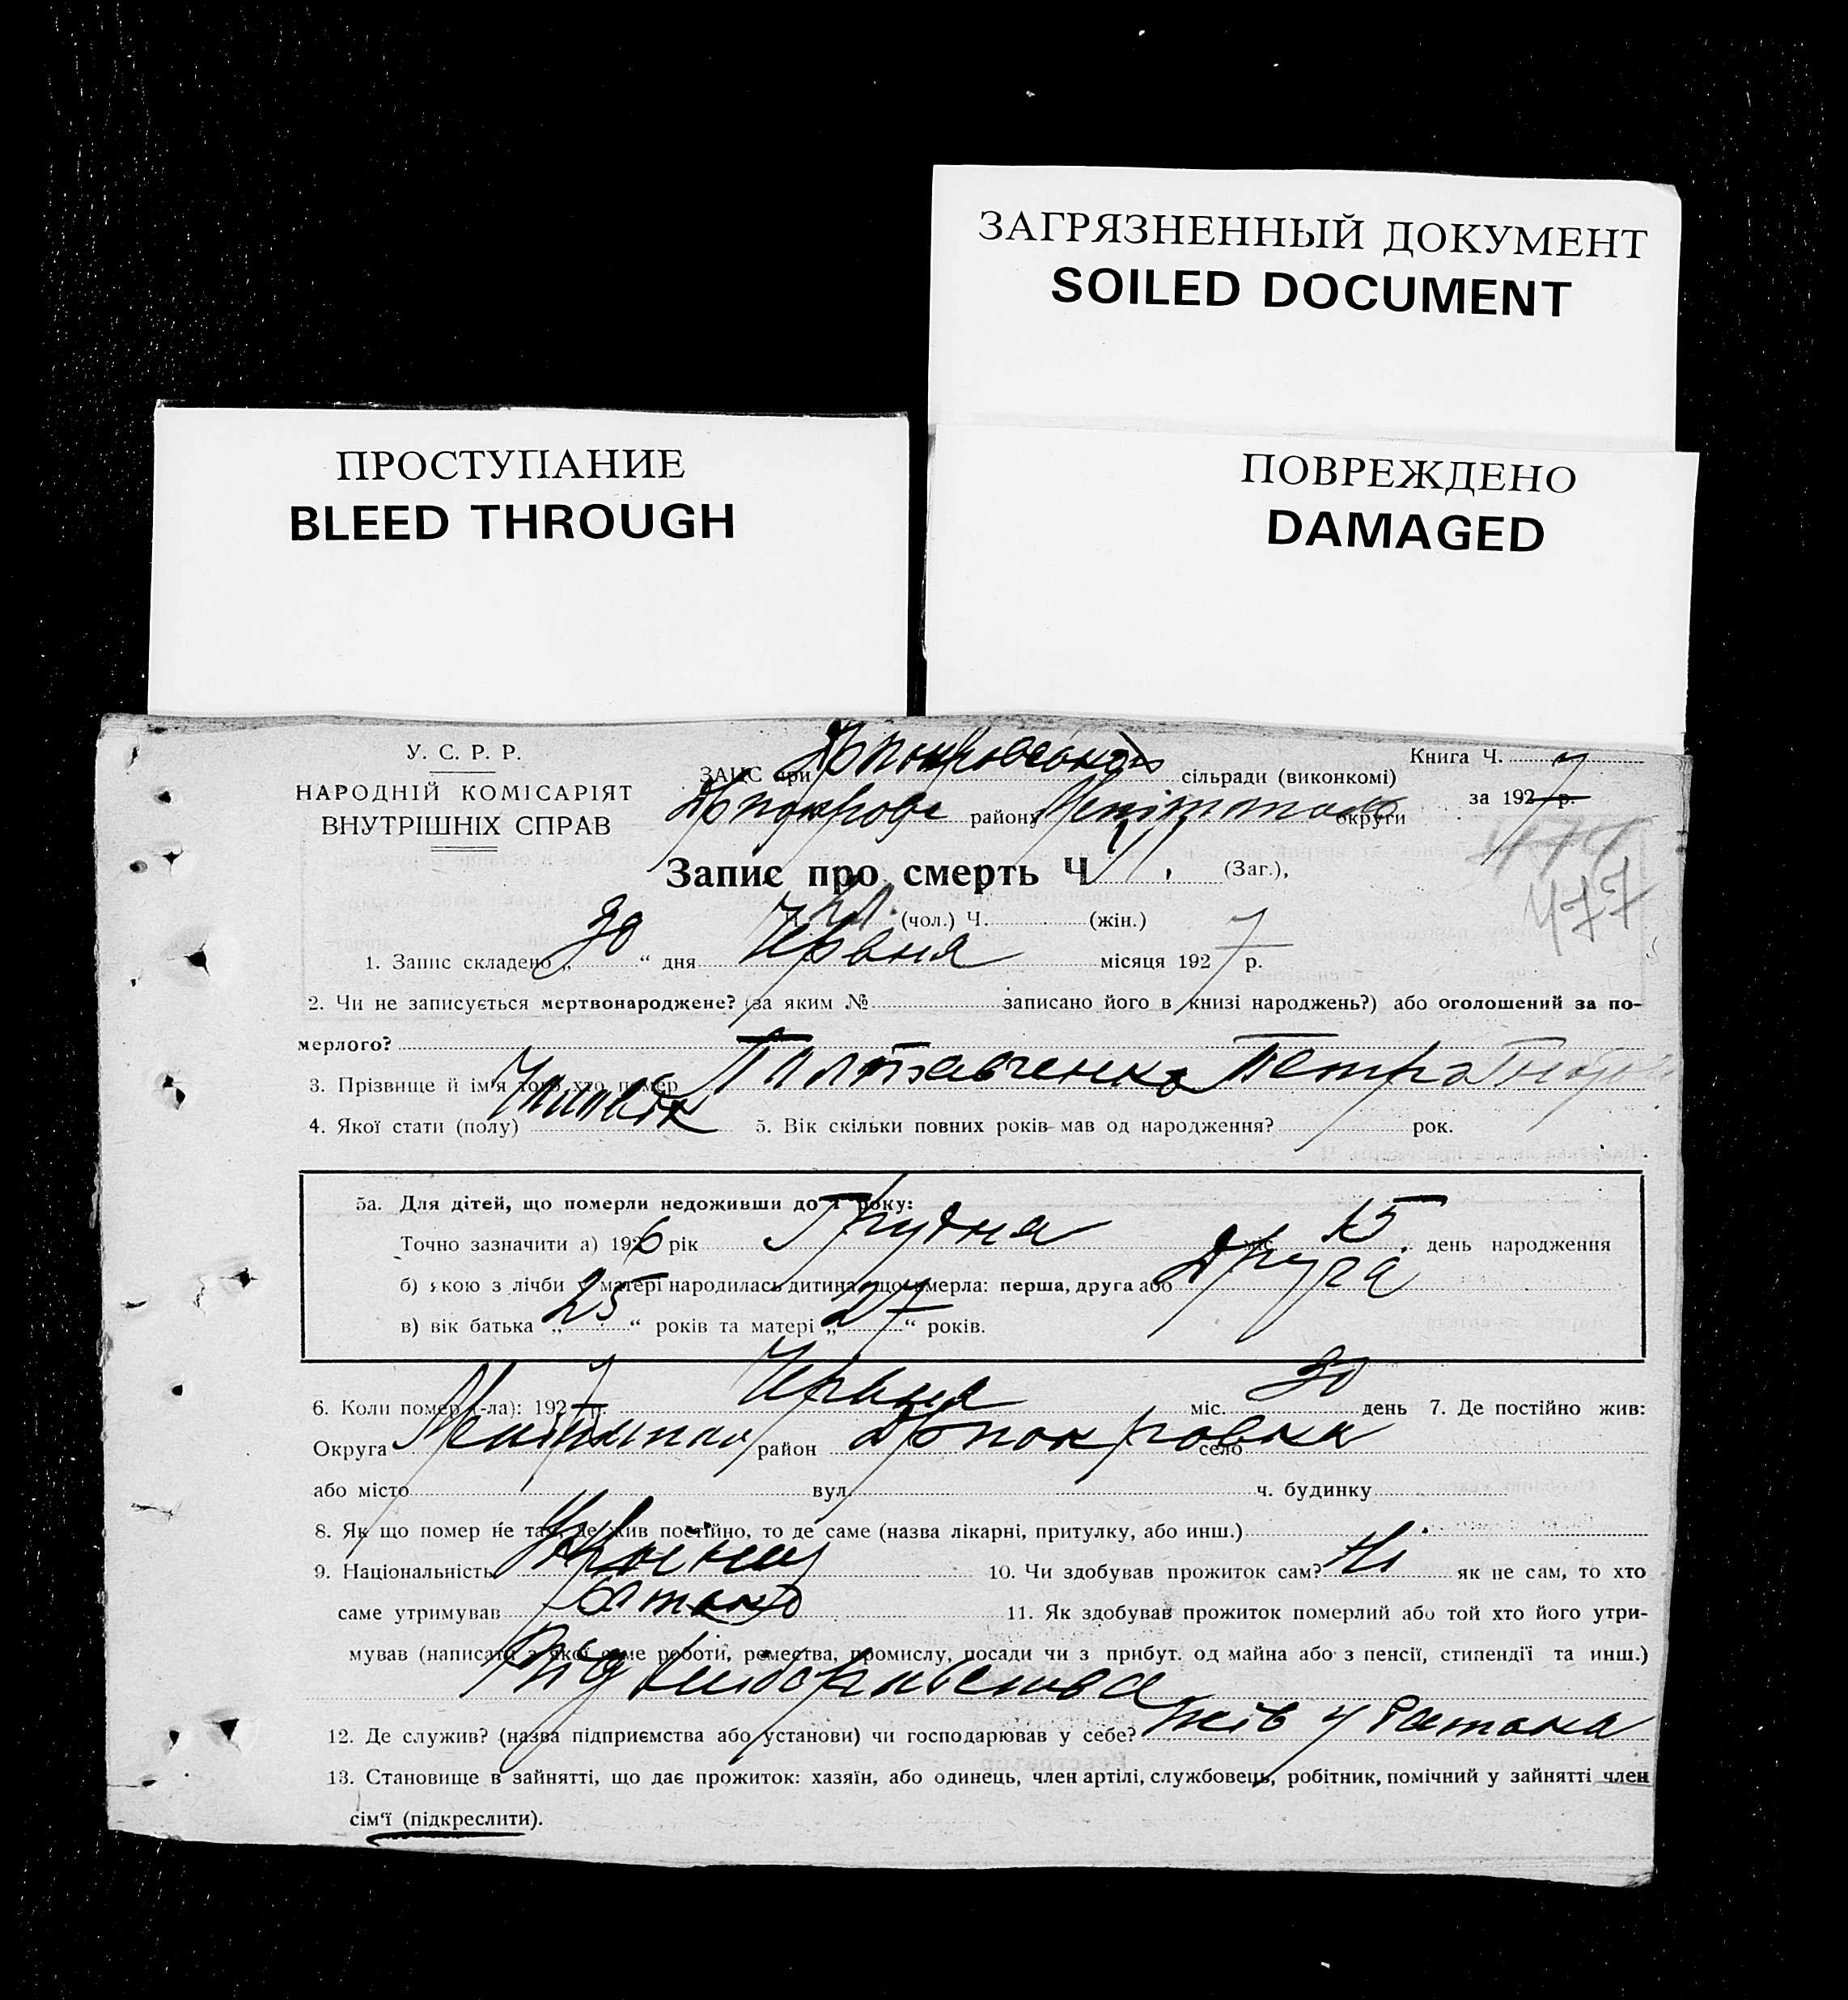 ЗАГРЯЗНЕННЫЙ ДОКУМЕНТ
SOILED DOCUMENT
ПРОСТУПАНИЕ
BLEED THROUGH
ПОВРЕЖДЕНО
DAMAGED
У. С. Р. Р.
НАРОДНІЙ КОМІСАРІЯТ
ВНУТРІШНІХ СПРАВ
ЗАЦС при сільради (виконкомі)
району округи
Книга Ч.
за 1927 р.
477
477
Запис про смерть Ч 11. (Заг.),
Ч. (чол.) Ч. (жін.)
1. Запис складено „30“ дня Червня місяця 1927 р.
2. Чи не записується мертвонароджене? (за яким № записано його в книзі народжень?) або оголошений за по-
мерлого?
3. Прізвище й ім'я того хто помер Полтавченко Петро
4. Якої стати (полу) 5. Вік скільки повних років мав од народження? рок.
5а. Для дітей, що померли недоживши до 1 року:
Точно зазначити а) 1926 рік Грудня міс. 15 день народження
б) якою з лічби у матері народилась дитина, що умерла: перша, друга або Друга
в) вік батька „25“ років та матері „27“ років.
6. Коли помер (-ла): 1927 р. Червня міс. 30 день 7. Де постійно жив:
Округа район село
або місто вул. ч. будинку
8. Як що помер не там, де жив постійно, то де саме (назва лікарні, притулку, або инш.)
9. Національність 10. Чи здобував прожиток сам? Ні як не сам, то хто
саме утримував батько 11. Як здобував прожиток померлий або той хто його утри-
мував (написати з якої саме роботи, ремества, промислу, посади чи з прибут. од майна або з пенсії, стипендії та инш.)
Від хліборобства
12. Де служив? (назва підприємства або установи) чи господарював у себе? жив у батька
13. Становище в зайнятті, що дає прожиток: хазяїн, або одинець, член артілі, службовець, робітник, помічний у зайнятті член
сім'ї (підкреслити).